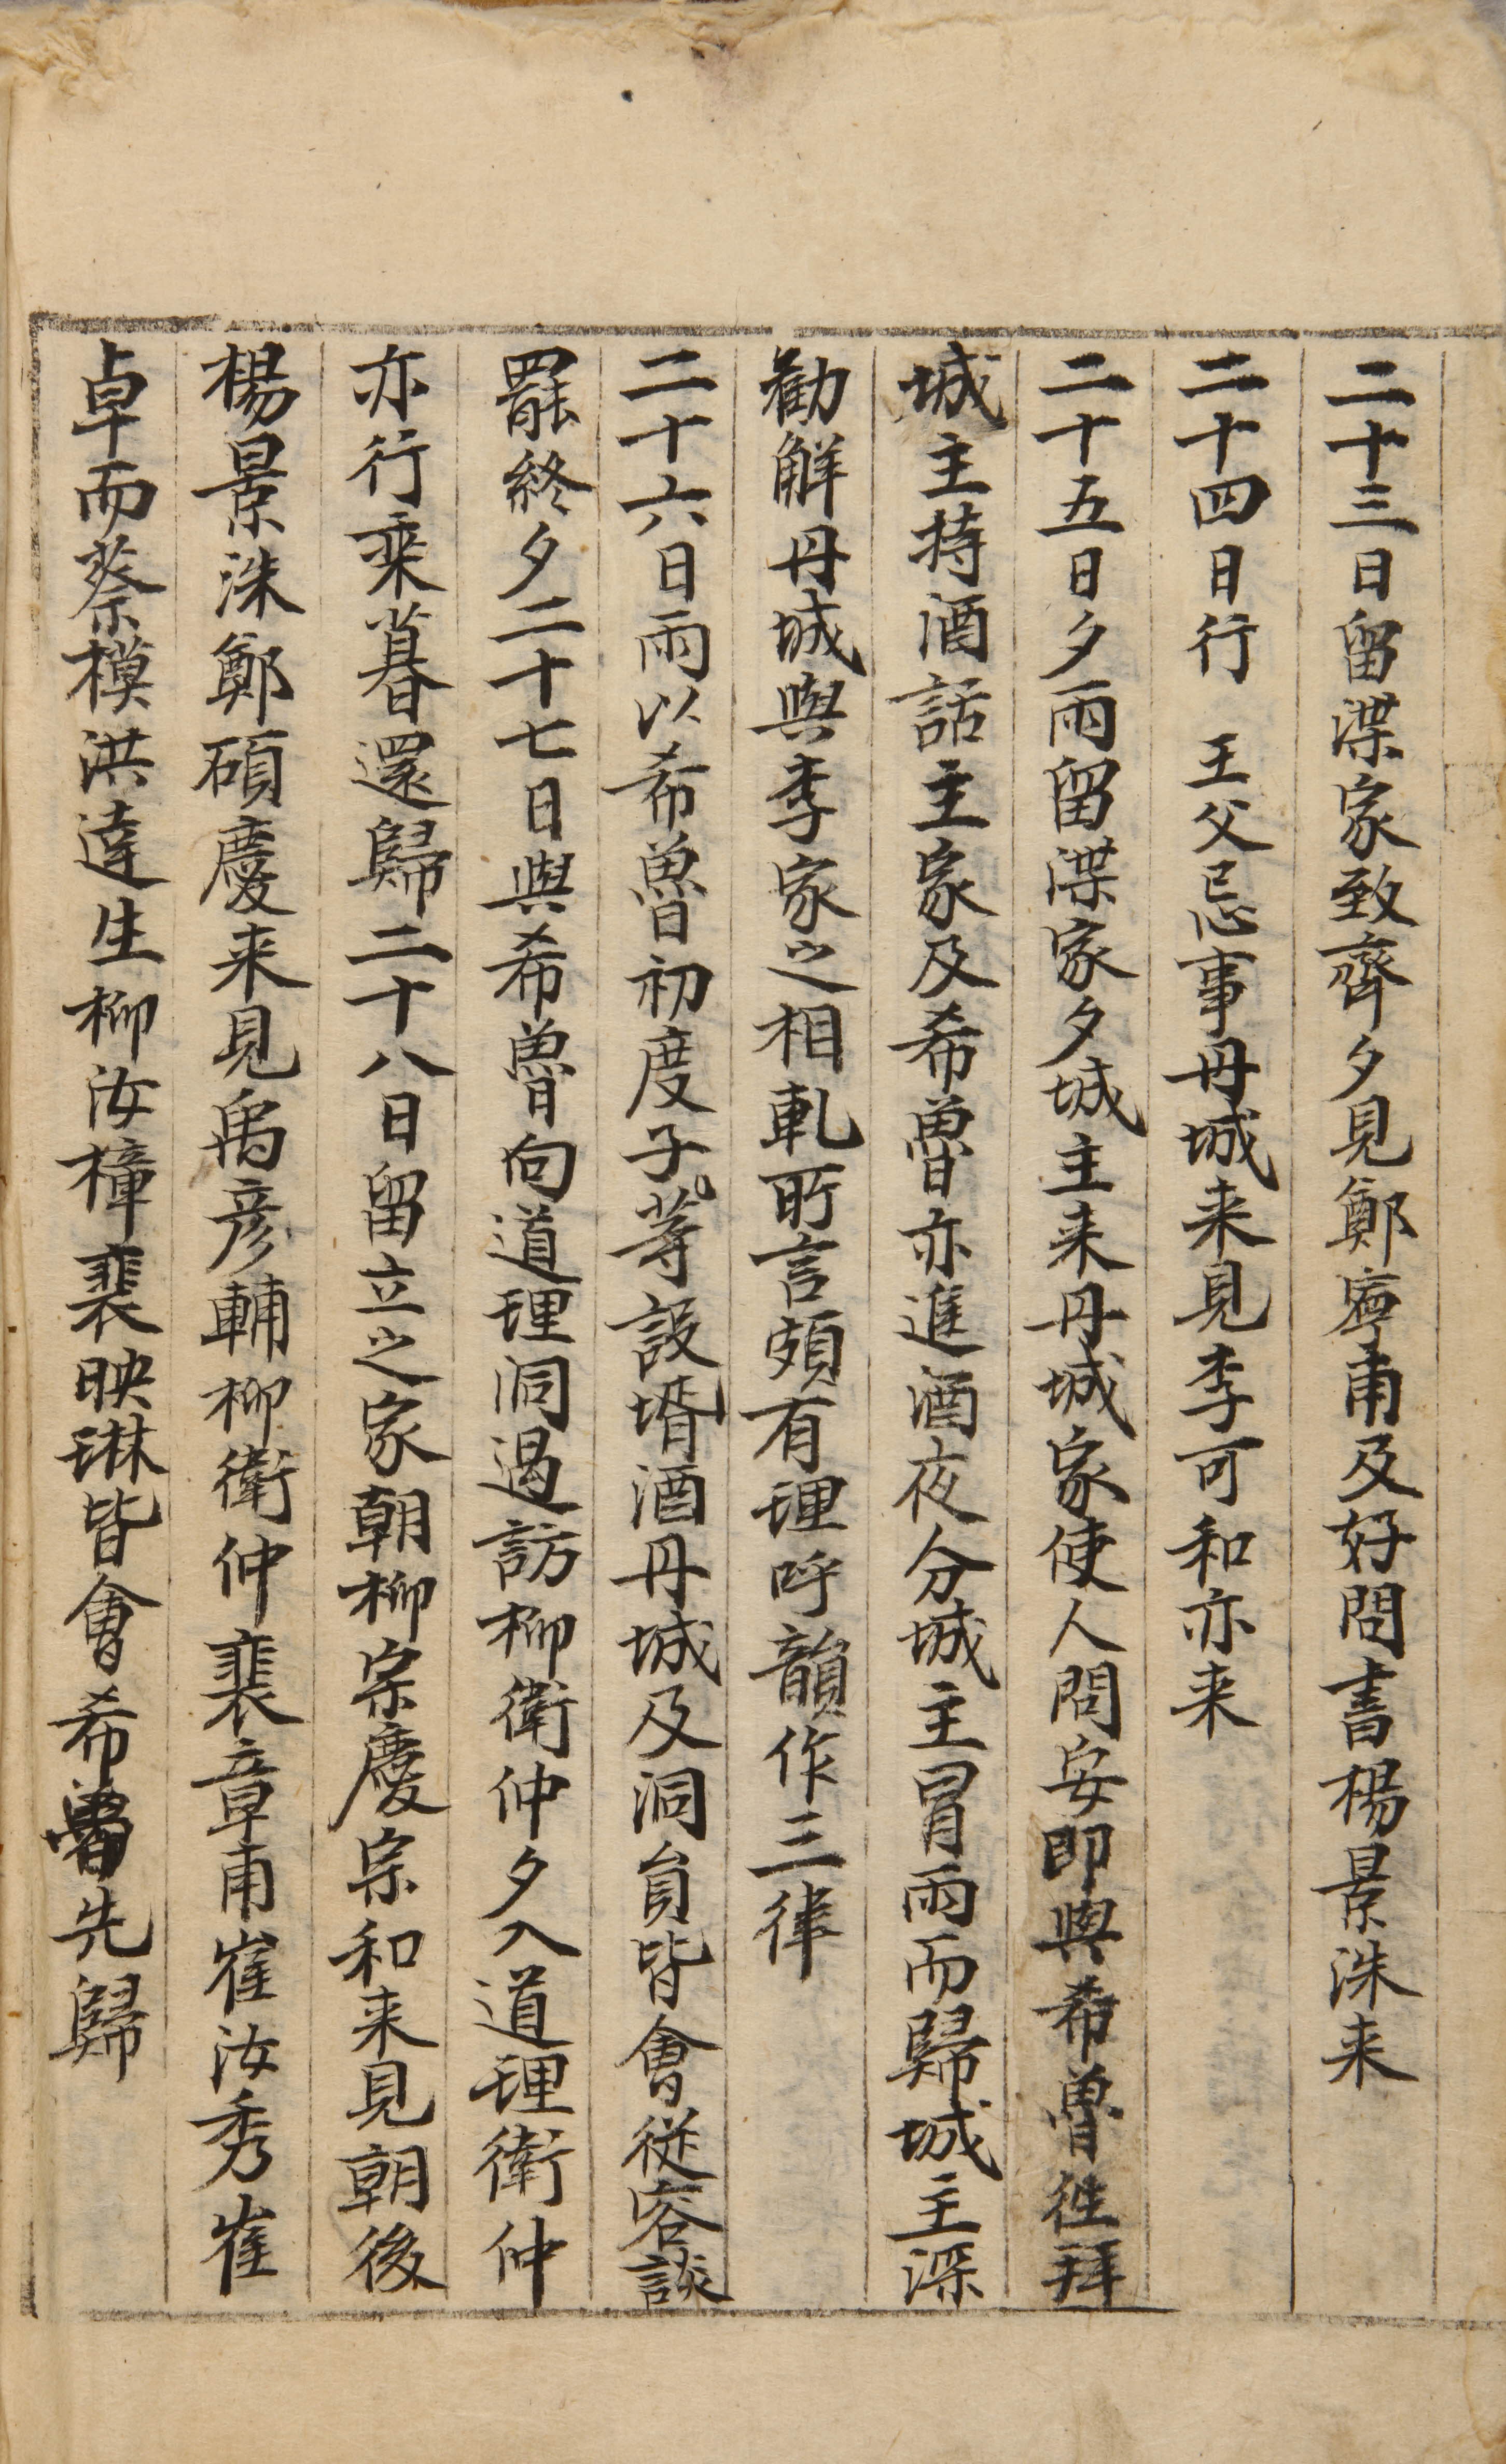 二十三日留渫家致齊夕見鄭寧甫及好問書楊景洙来
二十四日行 王父忌事丹城来見李可和亦来
二十五日夕雨留渫家夕城主来丹城家使人問安即與希魯徃拜
城主持酒話主家及希魯亦進酒夜分城主冒雨而歸城主深
勸解丹城與李家之相軋所言頗有理呼韻作三律
二十六日雨以希魯初度子芛設壻酒丹城及洞員皆會従容談
罷終夕二十七日與希魯向道理洞過訪柳衛仲夕入道理衛仲
亦行乘暮還歸二十八日留立之家朝柳宗慶宗和来見朝後
楊景洙鄭碩慶来見禹彦輔柳衛仲裴章甫崔汝秀崔
卓而蔡楧洪達生柳汝樟裴映琳皆會希魯先歸